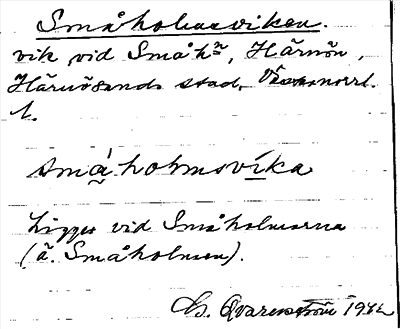 Småholmsviken.
vik vid Småhn, Härnön,
Härnösands stad, Västernorrl.
l.
småholmsvíka
Ligger vid Småholmarna
(ä. Småholmen).
Qvarnström 1942